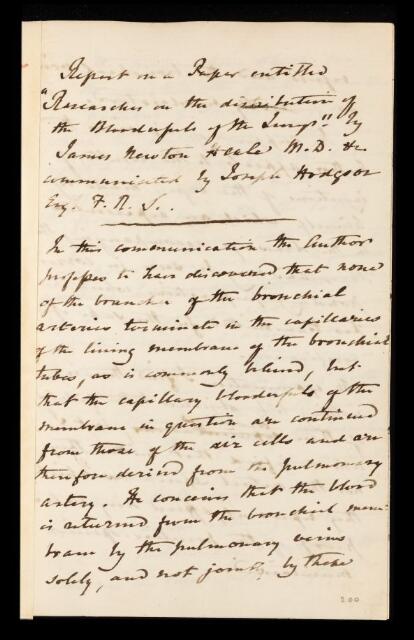 Report on a Paper entitled
"Researches on the distribution of
the Bloodvessels of the Lungs". By
James Newton Heale M.D. &c
communicated by Joseph Hodgson
Esqr. F. R. S..
In this communication the Author
professes to have discovered that none
of the branches of the bronchial
arteries terminate in the capillaries
of the lining membrane of the bronchial
tubes, as is commonly believed, but
that the capillary bloodvessels of the
membrane in question are continued
from those of the air cells and are
therefore derived from the pulmonary
artery. He conceives that the blood
is returned from the bronchial mem-
brane by the pulmonary veins
solely, and not jointly by these
200